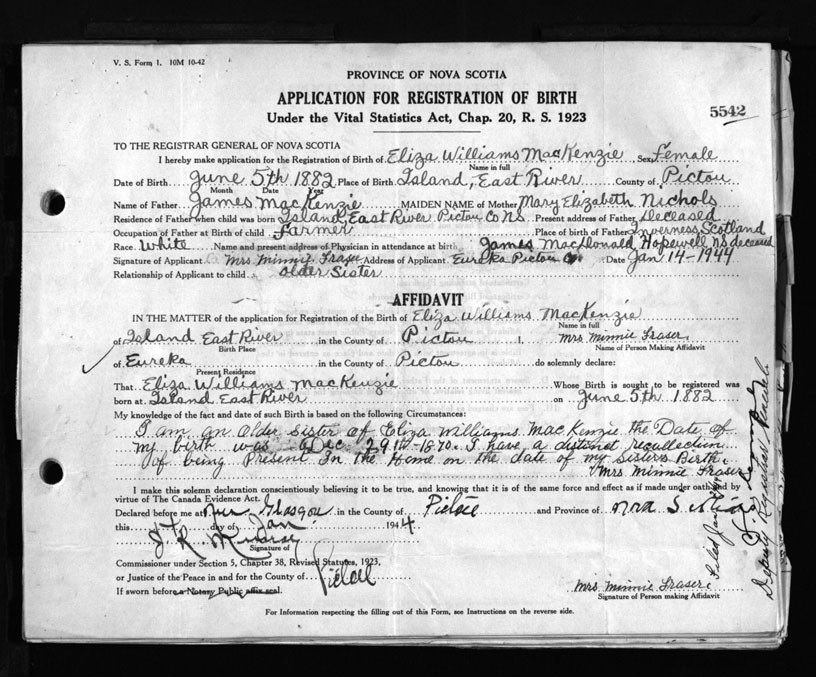 V. S. Form 1. 10M 10-42
PROVINCE OF NOVA SCOTIA
APPLICATION FOR REGISTRATION OF BIRTH
5542
Under the Vital Statistics Act, Chap. 20, R. S. 1923
TO THE REGISTRAR GENERAL OF NOVA SCOTIA
I hereby make application for the Registration of Birth of Eliza Williams MacKenzie Sex Female
Name in full
Date of Birth June 5th 1882 Place of Birth Island, East River County of Pictou
Month Date Year
Name of Father James MacKenzie MAIDEN NAME of Mother Mary Elizabeth Nichols
Residence of Father when child was born Island, East River Pictou Co NS Present address of Father Deceased
Occupation of Father at Birth of child Farmer Place of birth of Father Inverness Scotland
Race White Name and present address of Physician in attendance at birth James MacDonald Hopewell NS deceased
Signature of Applicant Mrs Minnie Fraser Address of Applicant Eureka Pictou Co Date Jan 14-1944
Relationship of Applicant to child older Sister
AFFIDAVIT
IN THE MATTER of the application for Registration of the Birth of Eliza Williams MacKenzie
Name in full
of Island East River in the County of Pictou I, Mrs Minnie Fraser
Birth Place Name of Person Making Affidavit
of Eureka in the County of Pictou do solemnly declare:
Present Residence
That Eliza Williams MacKenzie Whose Birth is sought to be registered was
born at Island East River on June 5th 1882
My knowledge of the fact and date of such Birth is based on the following Circumstances:
I am an Older Sister of Eliza Williams MacKenzie the Date of
my birth was Dec 29th-1870. I have a distinct recollection
of being Present In the Home on the date of my Sisters Birth.
Mrs Minnie Fraser
I make this solemn declaration conscientiously believing it to be true, and knowing that it is of the same force and effect as if made under oath and by
virtue of The Canada Evidence Act.
Declared before me at New Glasgow in the County of Pictou and Province of Nova Scotia
this day of Jan. 1944
J R Murray
Signature of
Commissioner under Section 5, Chapter 38, Revised Statutes, 1923,
or Justice of the Peace in and for the County of Pictou
If sworn before a Notary Public affix seal.
Mrs Minnie Fraser
Signature of Person making Affidavit
For Information respecting the filling out of this Form, see Instructions on the reverse side.
Filed Jan
Deputy Registrar